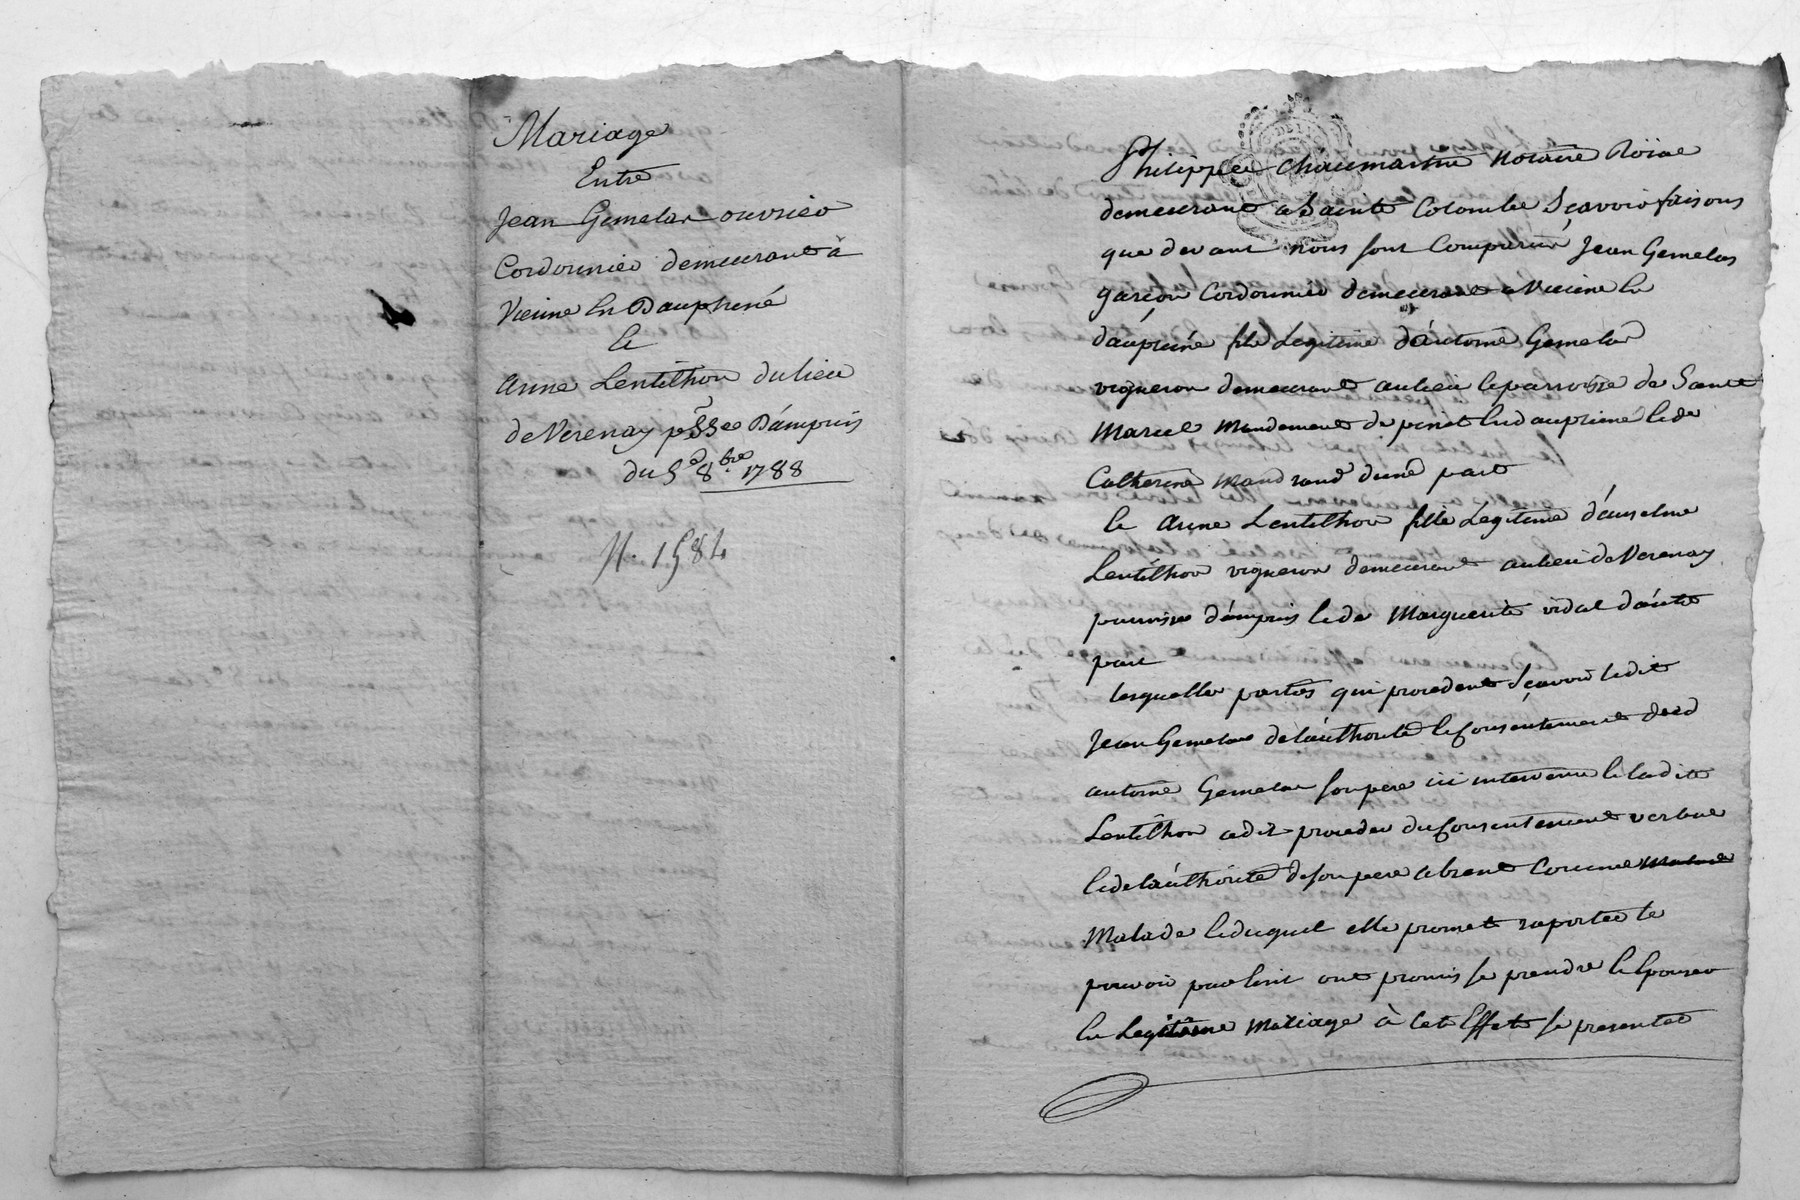 Mariage
Entre
Jean Gemelas ouvrier
Cordonnier demeurant à
Vienne En Dauphiné
Et
anne Lentilhon du lieu
de Verenay psse D'ampuis
du 5 8bre 1788
N. 1584
Philippe Chaumartin Notaire Roial
demeurant a Sainte Colombe Sçavoir faisons
que devant nous sont Comparus Jean Gemelas
garçon Cordonnier demeurant a Vienne En
dauphiné fils Legitime d'antoine Gemelas
vigneron demeurant au lieu et parroisse de Saint
Marcel Mandement de pinet En dauphiné Et de
Catherine Mandrand d'une part
Et Anne Lentilhon fille Legitime d'anselme
Lentilhon vigneron demeurant au lieu de Verenay
parroisse d'ampuis Et de Marguerite vidal d'autre
part
lesquelles parties qui procedent Sçavoir ledit
Jean Gemelas de l'authorité Et Consentement dud
antoine Gemelas son pere ici intervenu Et ladite
Lentilhon a dit proceder du Consentement verbal
Et de l'authorité de son pere absent Comme
Malade Et duquel elle promet raporter le
pouvoir par Ecrit ont promis se prendre Et Epouser
En Legitime Mariage à Cet Effet se presenter